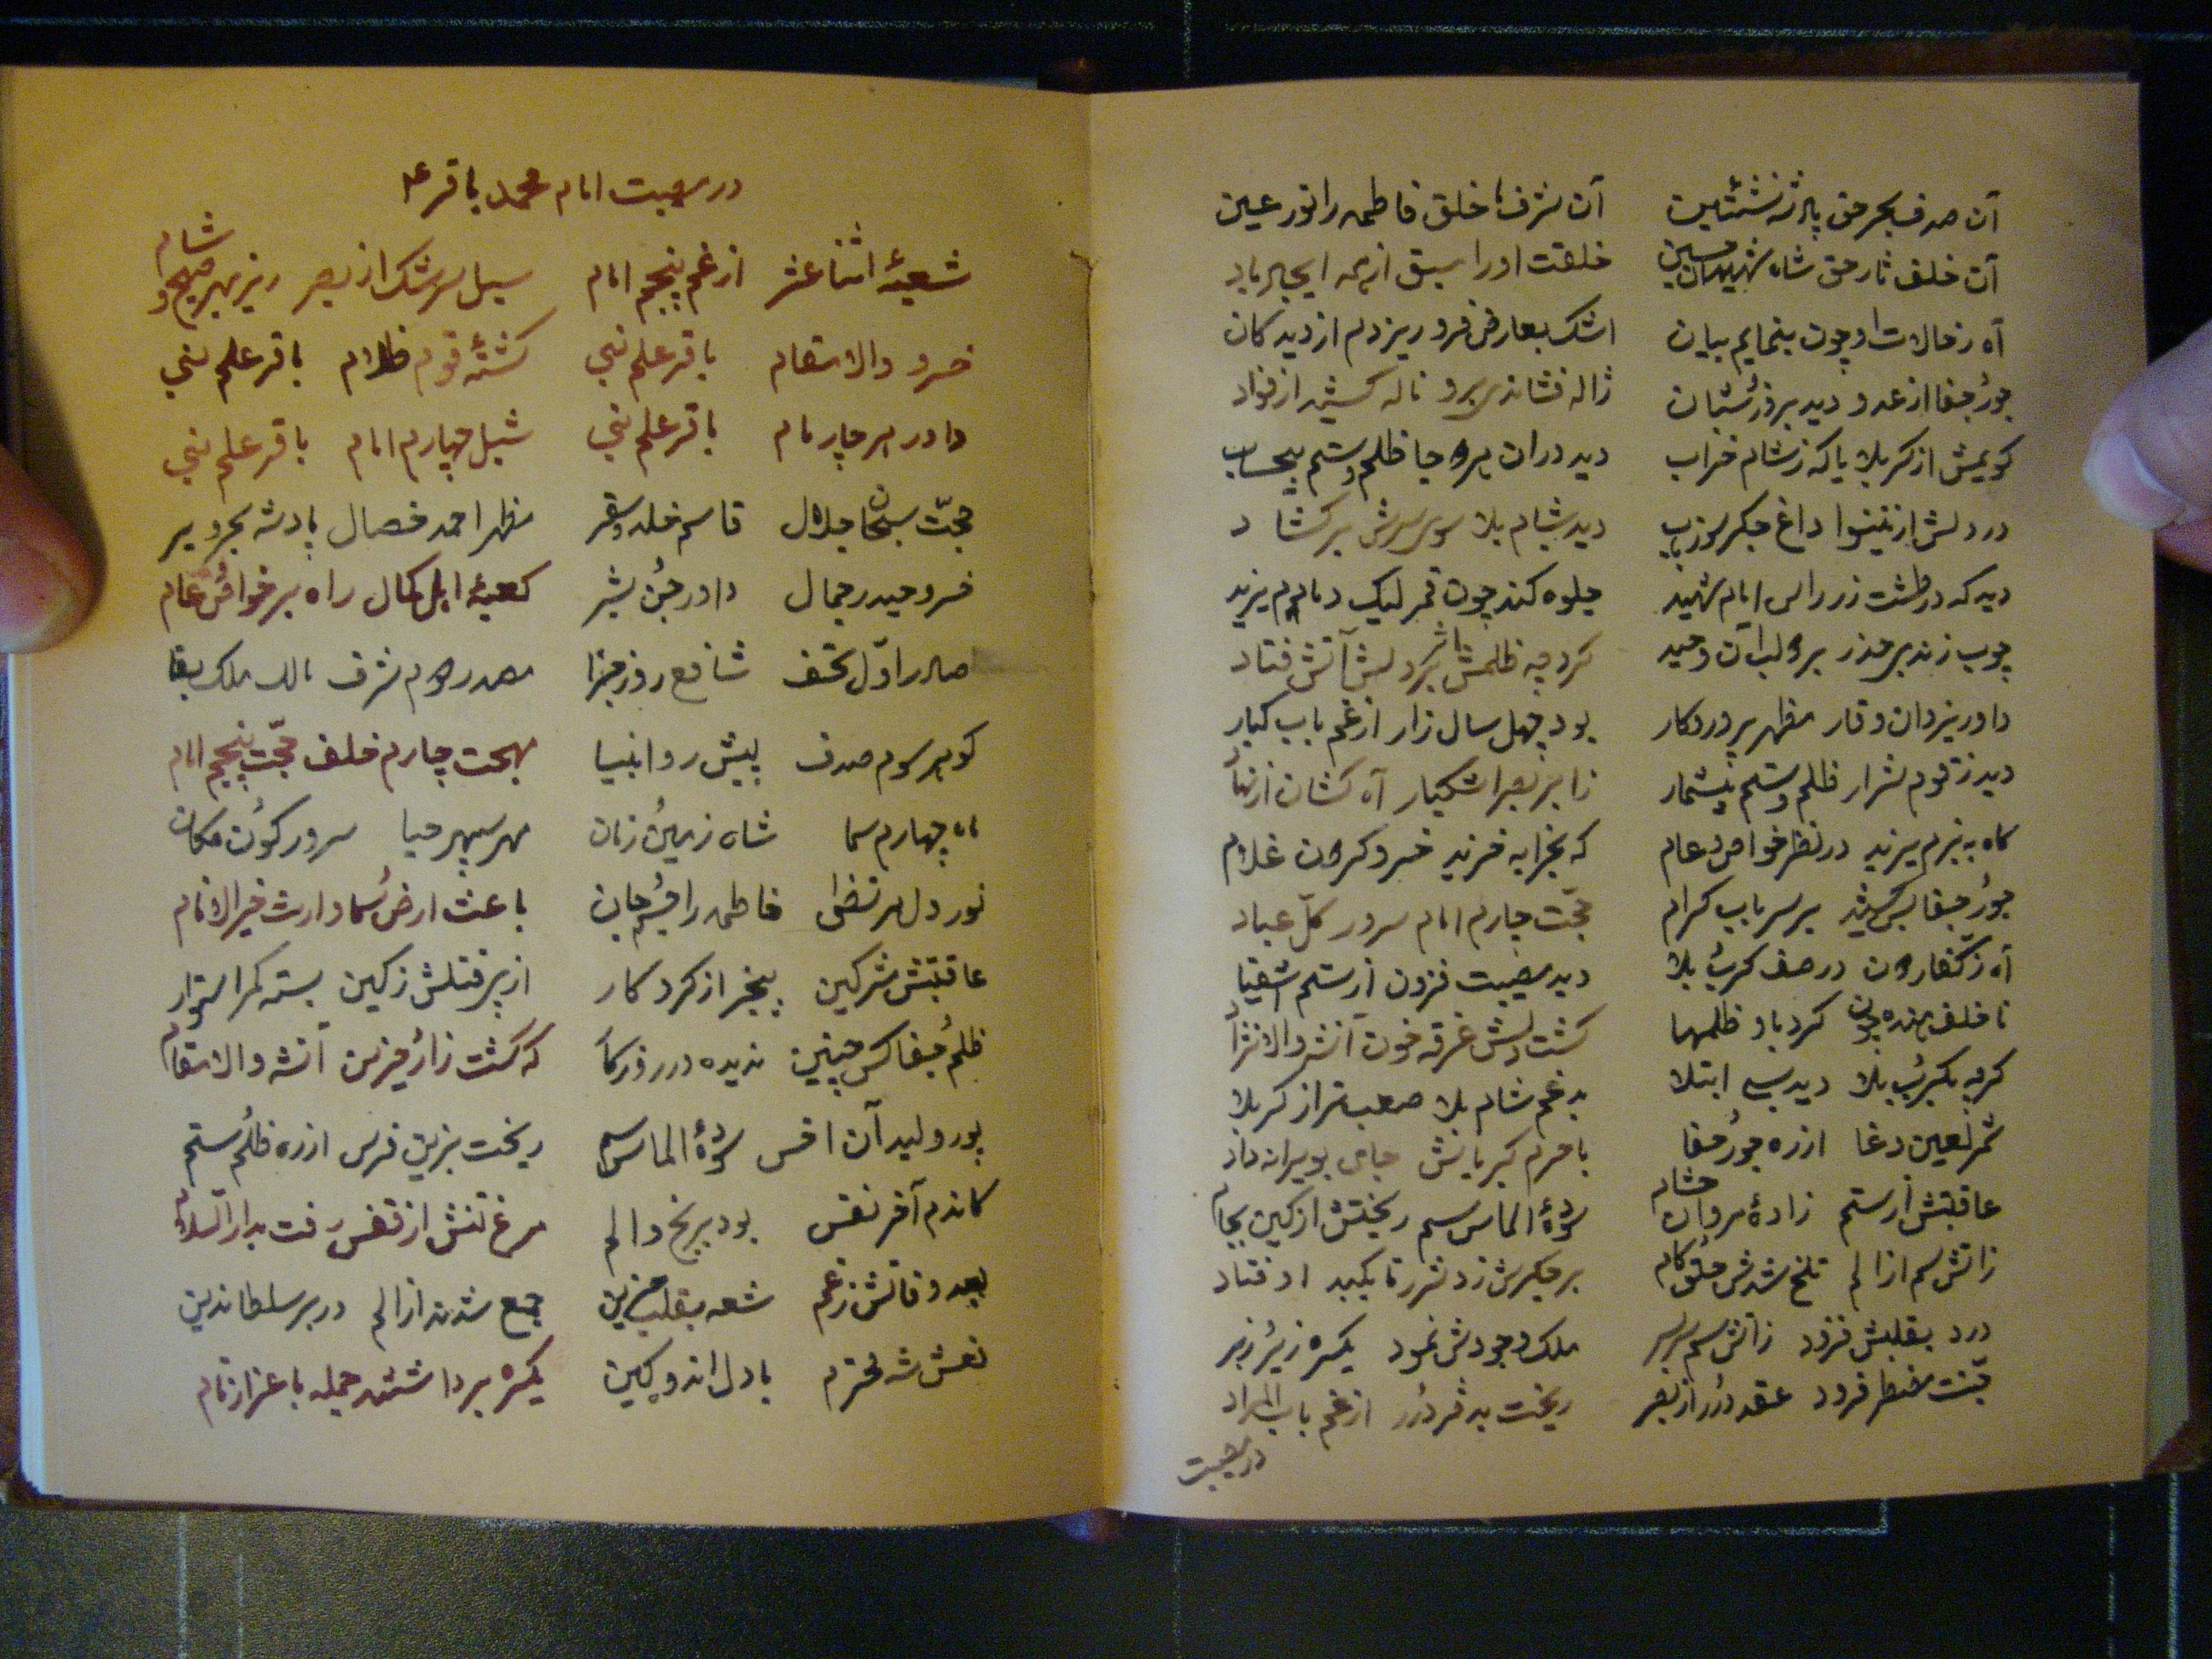 آن صدف بحر حق پادشه نشئتین آن شرف ما خلق فاطمه را نور عین
آن خلف ثار حق شاه شهیدان حسین خلقت او را سبق از همه ایجاد باد
آه ز حالات او چون بنمایم بیان اشک بعارض فرو ریزدم از دیدکان
جور و جفا از عدو دید بروز و شبان ژاله فشاندی برو ناله کشید از فؤاد
کویمش از کربلا یا که ز شام خراب دید در آن هر دو جا ظلم و ستم بیحساب
در دلش از نینوا داغ جکر سوز باب دید بشام بلا سوی سرش بر کشاد
دید که در طشت زر راس امام شهید جلوه کند چون قمر لیک دمادم یزید
چوب زند بر حذر بر دو لب آن وحید کرد چه ظلمش اثر بر دلش آتش فتاد
داور یزدان وقار مظهر پروردکار بود چهل سال زار از غم باب کبار
دید ز قوم شرار ظلم و ستم بیشمار زابر بصر اشکبار آه کشان از نهاد
کاه به بزم یزید در نظر خواص و عام که بخرابه خزید خسرو کردون غلام
جور و جفا بس کشید بر سر باب کرام حجّت چارم امام سرور کلّ عباد
آه ز کفار دون در صف کرب و بلا دید مصیبت فزون از ستم اشقیا
ناخلف هنده چون کرد باو ظلمها کشت دلش غرقه خون آنشه والانژاد
کرچه بکرب و بلا دید بسی ابتلا بد غم شام بلا صعب‌تر از کربلا
شمر لعین دغا از ره جور و جفا با حرم کبریاش جای بویرانه داد
عاقبتش از ستم زادهٔ مروان هشام سودهٔ الماس سم ریختش از کین بجام
زاتش سم از الم تلخ شدش حلق و کام بر جکرش زد شرر تا بکبد اوفتاد
درد بقلبش فزود زاتش سم سربسر ملک وجودش نمود یکسره زیر و زبر
عقد درر از بصر ریخت بدفتر درر از غم باب المراد
در مصیبت
در مصیبت امام محمد باقر ع
شعیهٔ اثنا عشر از غم پنجم امام سیل سرشک از بصر ریز بهر صبح و شام
خسرو والا مقام باقر علم نبی کشتهٔ قوم ظلام باقر علم نبی
داور هر چار مام باقر علم نبی شبل چهارم امام باقر علم نبی
حجّت سبحان جلال قاسم خلد و سقر مظهر احمد خصال پادشه بحر و بر
خسرو حیدر جمال داور جنّ و بشر کعبهٔ اهل کمال راه بر خواص و عام
صادر اوّل تحف شافع روز جزا مصدر دوم شرف مالک ملک بقا
کوهر سوم صدف پیش رو انبیا بهجت چارم خلف حجّت پنجم امام
ماه چهارم سما شاه زمین و زمان مهر سپهر حیا سرور کون و مکان
نور دل مرتضی فاطمه را جسم و جان باعث ارض و سما وارث خیرالانام
عاقبتش مشرکین بیخبر از کردکار از پی قتلش ز کین بسته کمر استوار
ظلم و جفا کس چنین ندیده در روزکار که کشت زار و حزین آنشه والا مقام
پور ولید آن اخس سودهٔ الماس سم ریخت بزین فرس از ره ظلم و ستم
کاندم آخر نفس بود برنج و الم مرغ تنش از قفس رفت بدار السلام
بعد وفاتش ز غم شعه بقلب حزین جمع شدند از الم در بر سلطاندین
نعش شه محترم با دل اندوهکین یکسره برداشتند جمله باعزاز تام